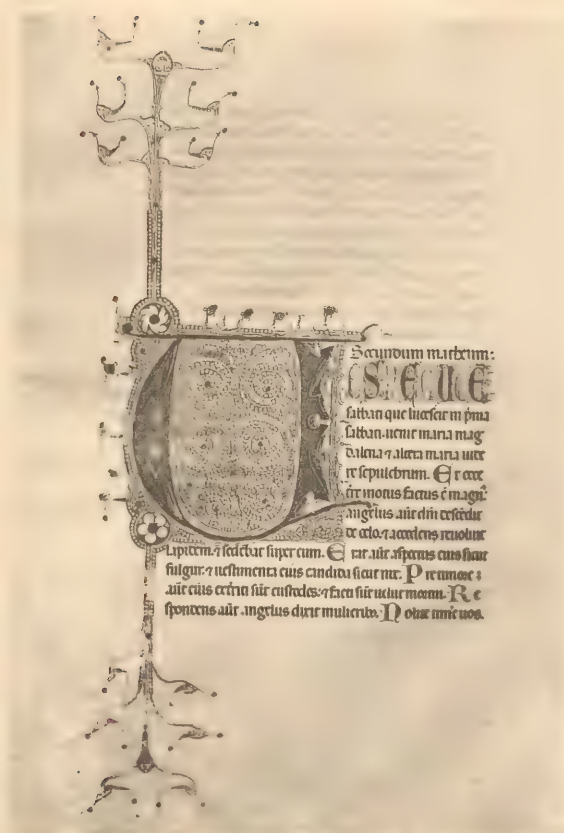 Secundum matheum:
V S E R E
sabbati que lucescit in pma
sabbati. uenit maria mag
dalena ⁊ altera maria uide
re sepulchrum. Et ecce
motus factus ē magn᷒.
angelus aūt dn̄i descēdit
de celo. ⁊ accedens reuoluit
lapidem. ⁊ sedebat super eum. Erat aūt aspectus eius sicut
fulgur. ⁊ uestimenta eius candida sicut nix. Pre timore
aūt eius exterriti sūt custodes: ⁊ facti sūt uelut mortui. Re
spondens aūt angelus dixit mulierib᷒. Nolite timēe uos.